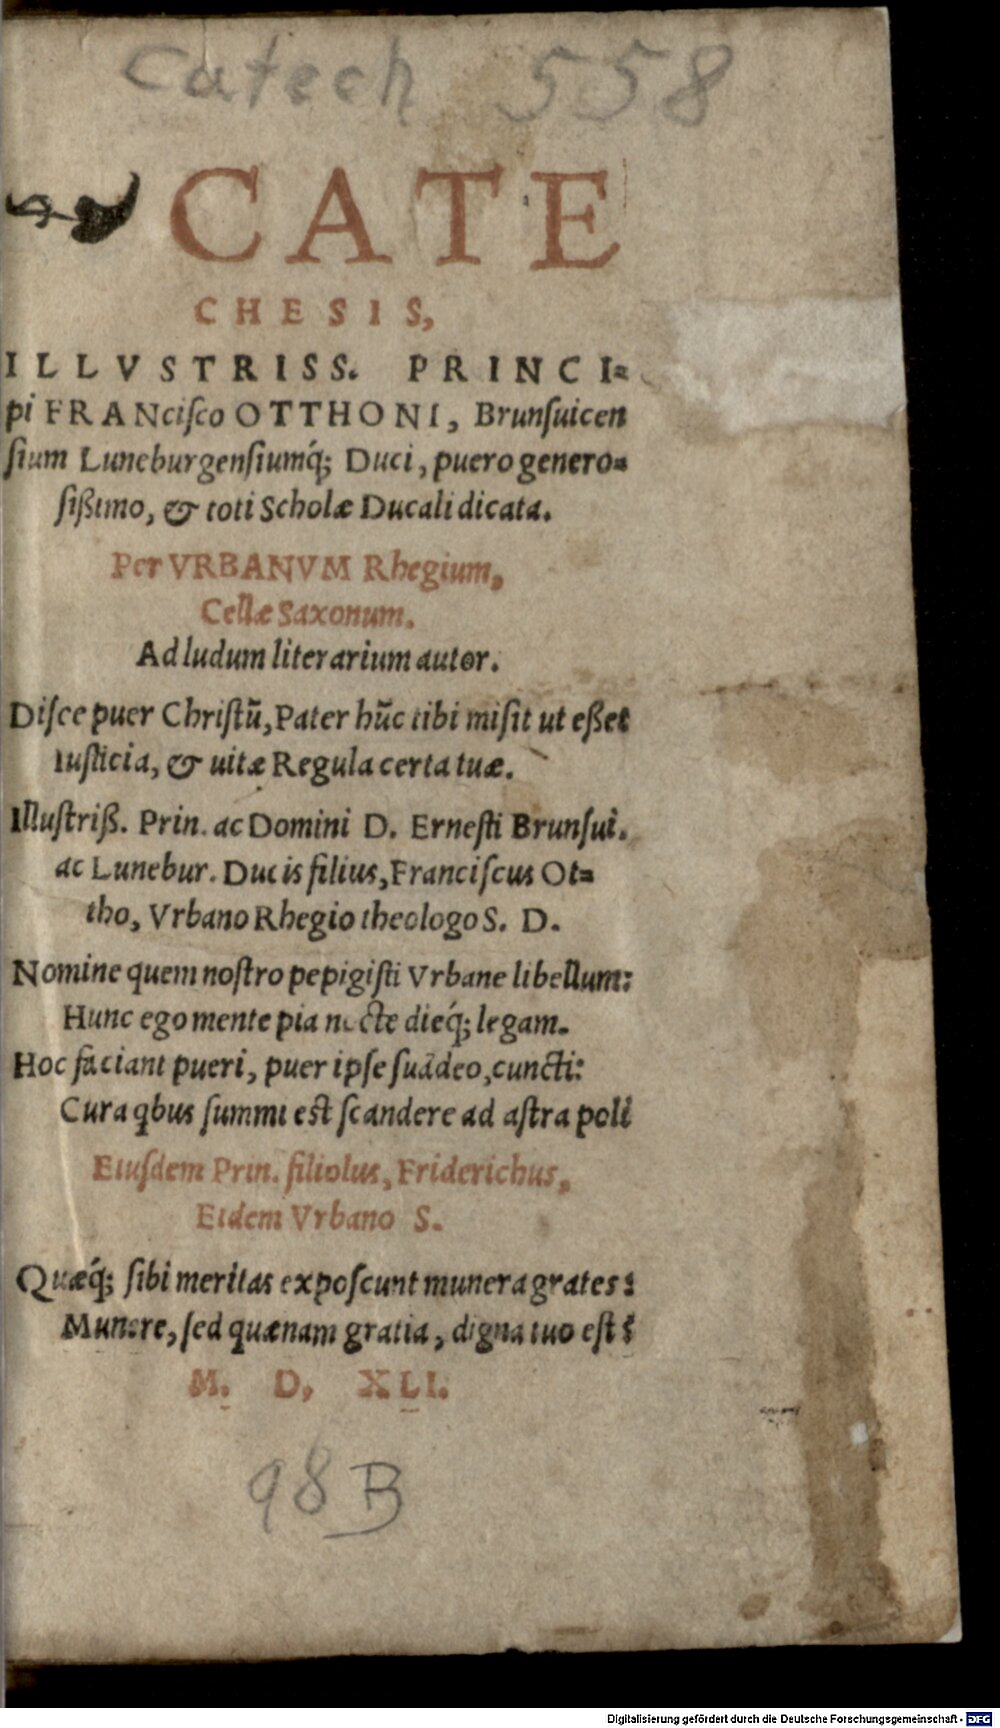 Catech 558
CATE
CHESIS,
ILLVSTRISS. PRINCI=
pi FRANciſco OTTHONI, Brunſuicen
ſium Luneburgenſiumq́; Duci, puero genero=
ſißimo, & toti Scholæ Ducali dicata.
Per VRBANVM Rhegium,
Cellæ Saxonum.
Ad ludum literarium autor.
Diſce puer Chriſtũ, Pater hũc tibi miſit ut eßet
Iuſticia, & uitæ Regula certa tuæ.
Illuſtriß. Prin. ac Domini D. Erneſti Brunſui.
ac Lunebur. Ducis filius, Franciſcus Ot=
tho, Vrbano Rhegio theologo S. D.
Nomine quem noſtro pepigiſti Vrbane libellum:
Hunc ego mente pia nocte dieq́; legam.
Hoc faciant pueri, puer ipſe ſuadeo, cuncti:
Cura qbus ſummi eſt ſcandere ad aſtra poli
Eiuſdem Prin. filiolus, Friderichus,
Eidem Vrbano S.
Quæq́; ſibi meritas expoſcunt munera grates:
Munere, ſed quænam gratia, digna tuo eſt?
M. D, XLI.
98 B
Digitalisierung gefördert durch die Deutsche Forschungsgemeinschaft - DFG